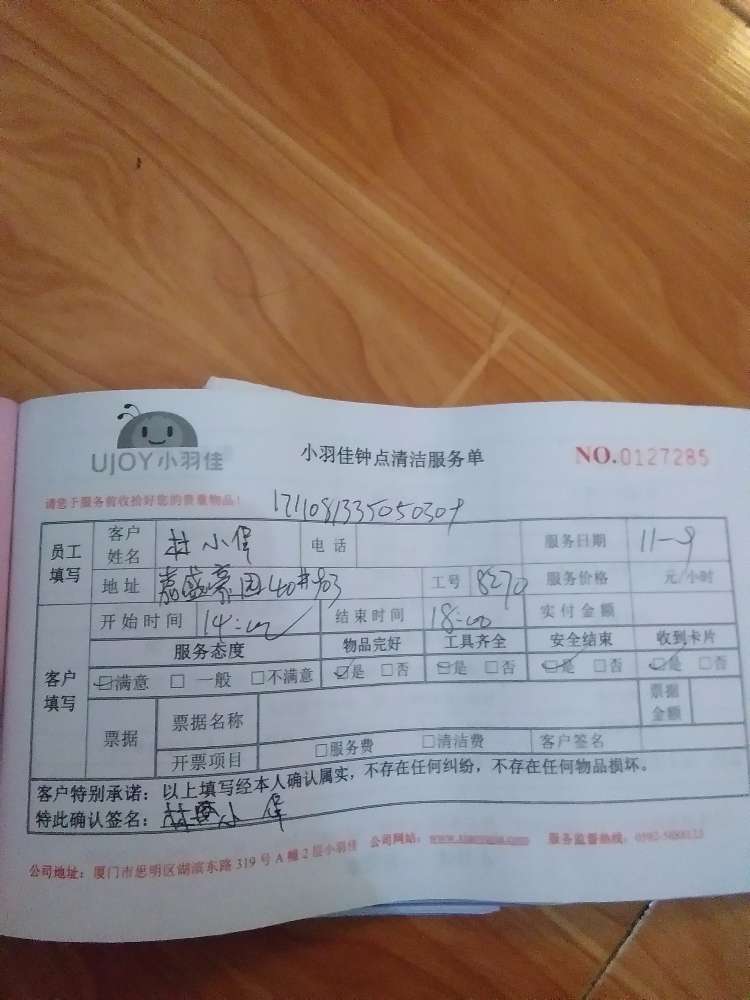 UJOY小羽佳
小羽佳钟点清洁服务单
NO.0127285
请您于服务前收拾好您的贵重物品!
1711081335050309
员工填写 客户姓名 林小伟 电话 服务日期 11-9
地址 嘉盛豪园40#903 工号 8270 服务价格 元/小时
客户填写 开始时间 14:00 结束时间 18:00 实付金额
服务态度 物品完好 工具齐全 安全结束 收到卡片
☑满意 □一般 □不满意 ☑是 □否 ☑是 □否 ☑是 □否 ☑是 □否
票据 票据名称 票据金额
开票项目 □服务费 □清洁费 客户签名
客户特别承诺:以上填写经本人确认属实,不存在任何纠纷,不存在任何物品损坏。
特此确认签名:林小伟
公司地址:厦门市思明区湖滨东路319号A幢2层小羽佳 公司网站: 服务监督热线: